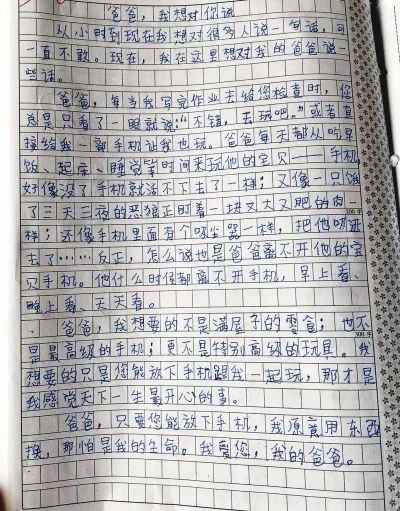 爸爸，我想对你说
从小时到现在我想对很多人说一句话，可
一直不敢。现在，我在这里想对我的爸爸说一
些话。
爸爸，每当我写完作业去给您检查时，您
总是只看了一眼就说：“不错，去玩吧。”或者直
接给我一部手机让我也玩。爸爸每天都从吃早
饭、起床、睡觉等时间来玩他的宝贝——手机，
好像没了手机就活不下去了一样；又像一只饿
了三天三夜的恶狼正盯着一块又大又肥的肉一
样；还像手机里面有个吸尘器一样，把他吸进
去了……反正，怎么说也是爸爸离不开他的宝
贝手机。他什么时候都离不开手机，早上看、
晚上看、天天看。
爸爸，我想要的不是满屋子的零食；也不
是最高级的手机；更不是特别高级的玩具。我
想要的只是您能放下手机跟我一起玩，那才是
我感觉天下一生最开心的事。
爸爸，只要您能放下手机，我愿意用东西
换，那怕是我的生命。我爱您，我的爸爸。